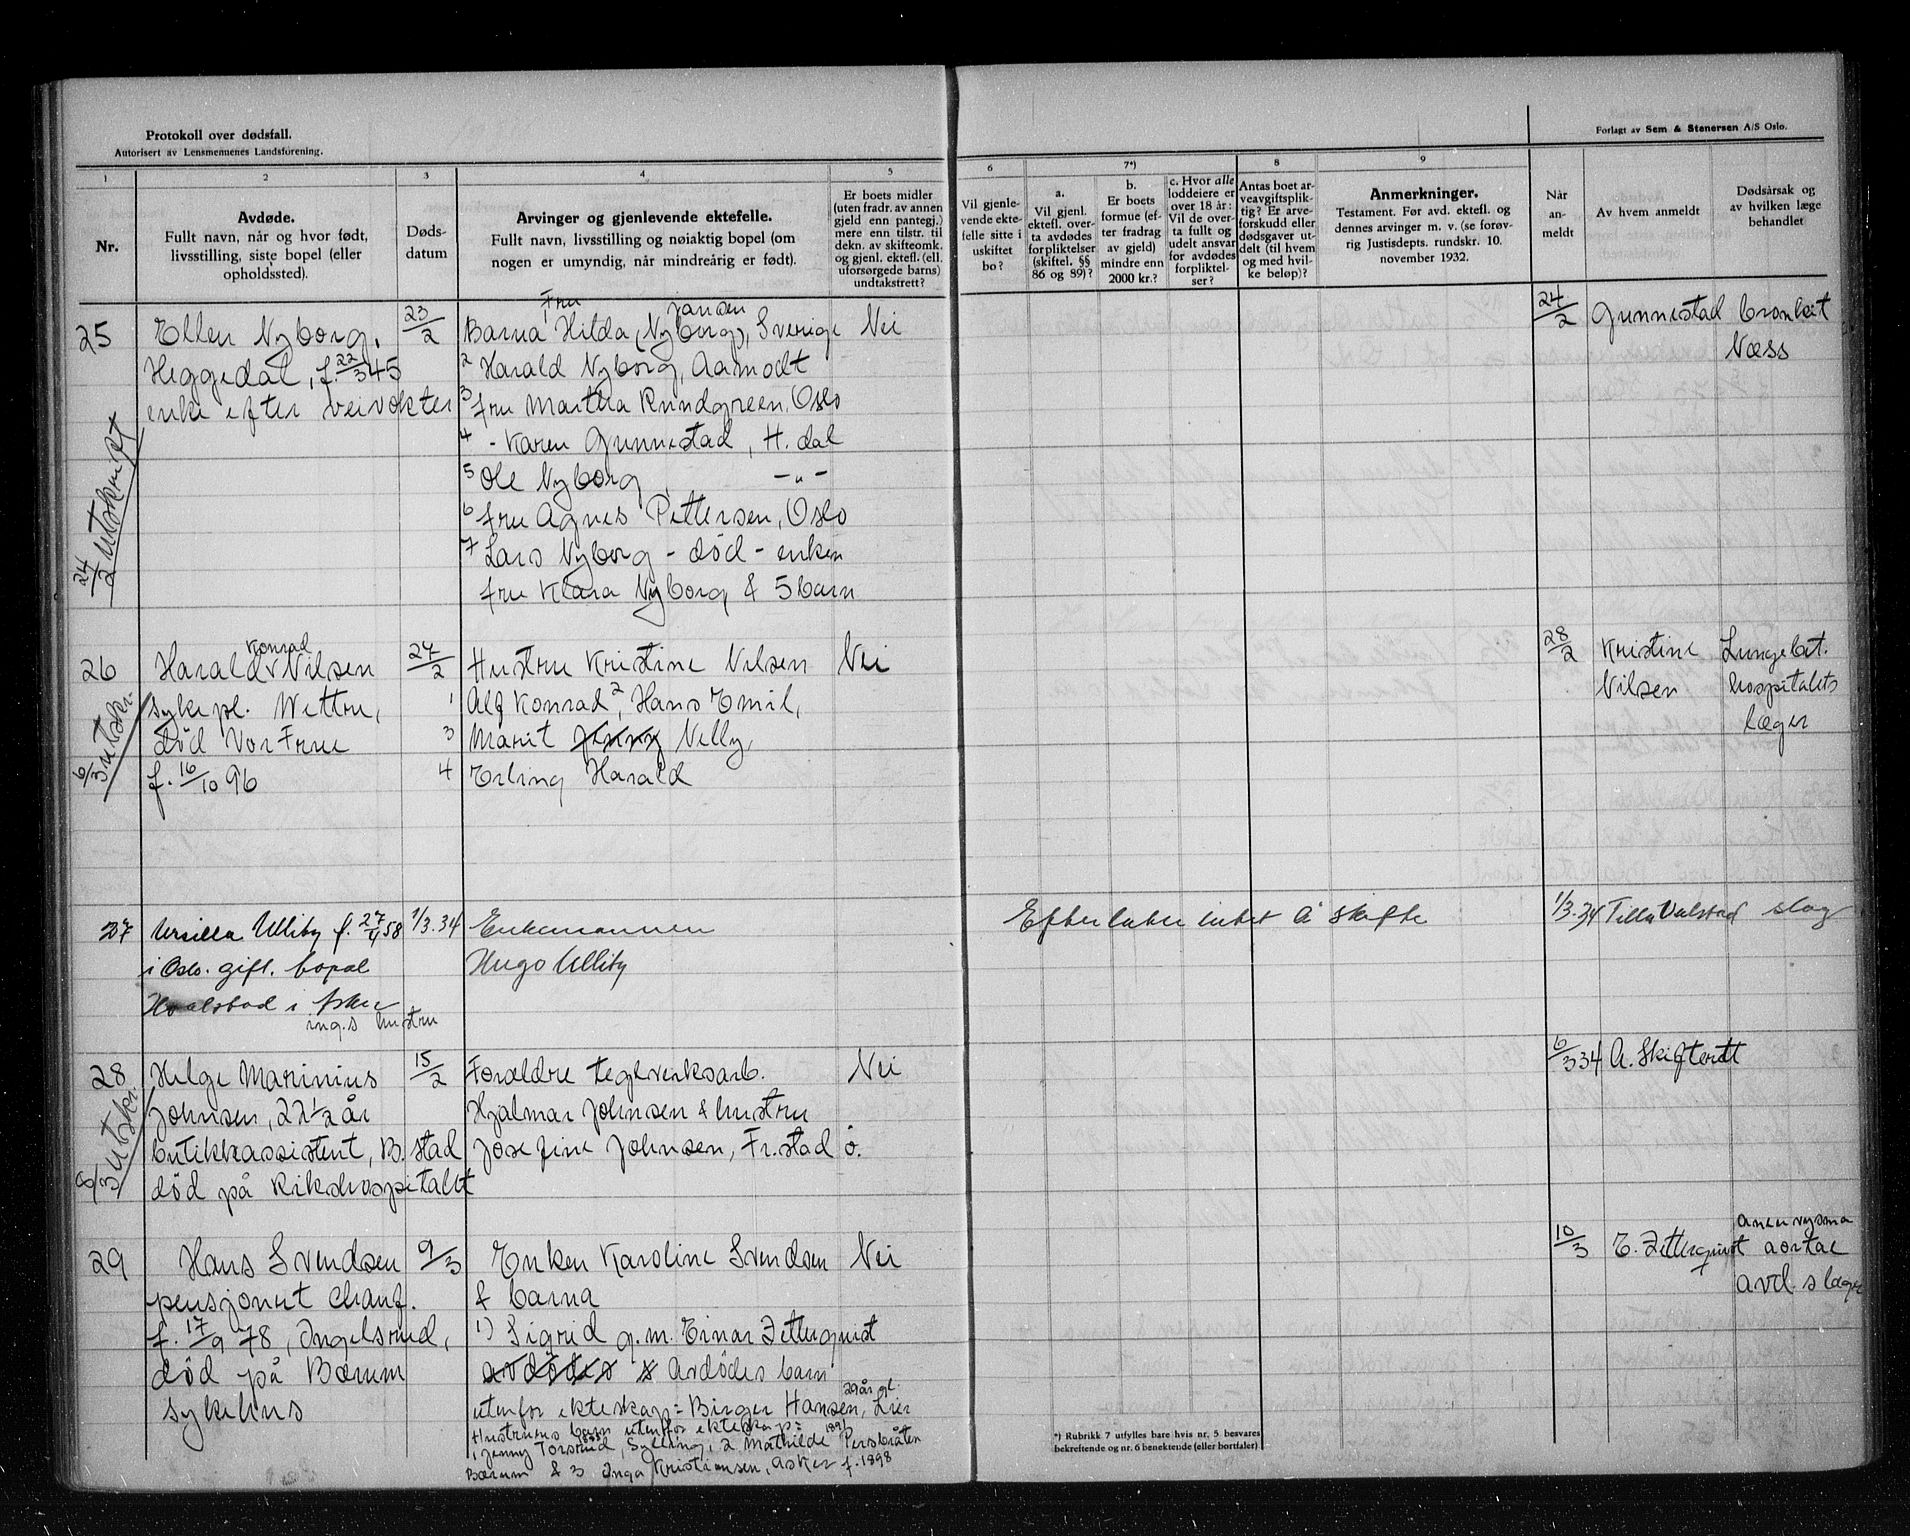 Protokoll over dødsfall.
Autorisert av Lensmennenes Landsforening.
Forlagt av Sem & Stenersen A/S Oslo.
1
2
3
4
5
6
7*)
8
9
Nr.
Avdøde.
Fullt navn, når og hvor født,
livsstilling, siste bopel (eller
opholdssted).
Døds-
datum
Arvinger og gjenlevende ektefelle.
Fullt navn, livsstilling og nøiaktig bopel (om
nogen er umyndig, når mindreårig er født).
Er boets midler
(uten fradr. av annen
gjeld enn pantegj.)
mere enn tilstr. til
dekn. av skifteomk.
og gjenl. ektefl. (ell.
uforsørgede barns)
undtakstrett?
Vil gjenle-
vende ekte-
felle sitte i
uskiftet
bo?
a.
Vil gjenl.
ektefl. over-
ta avdødes
forpliktelser
(skiftel. §§
86 og 89)?
b.
Er boets
formue (ef-
ter fradrag
av gjeld)
mindre enn
2000 kr.?
c. Hvor alle
loddeiere er
over 18 år:
Vil de over-
ta fullt og
udelt ansvar
for avdødes
forpliktel-
ser?
Antas boet ar-
veavgiftsplik-
tig? Er arve-
forskudd eller
dødsgaver ut-
delt (til hvem
og med hvil-
ke beløp)?
Anmerkninger.
Testament. Før avd. ektefl. og
dennes arvinger m. v. (se forøv-
rig Justisdepts. rundskr. 10.
november 1932.
Når
an-
meldt
Av hvem anmeldt
Dødsårsak og
av hvilken læge
behandlet
25
Ellen Nyborg,
Heggedal, f. 22/3 45
enke efter veivokter
24/2 utskrift
23/2
Fru Jansen
Barna Hilda (Nyborg), Sverige
2 Harald Nyborg, Aamodt
3 fru Martha Rundgreen, Oslo
4 - Karen Gunnestad, H. dal
5 Ole Nyborg, -"-
6 fru Agnes Pettersen, Oslo
7 Lars Nyborg - død - enken
fru Klara Nyborg & 5 barn
Nei
24/2
Gunnestad
bronkit
Næss
26
Konrad
Harald Nilsen
sykepl. Wettre,
død Vor Frue
f. 16/10 96
6/3 utskr.
27/2
Hustru Kristine Nilsen
1 Alf Konrad, 2 Hans Emil,
3 Marit Jenny Nelly,
4 Erling Harald
Nei
28/2
Kristine
Nilsen
Lungebet.
hospitalets
læger
27
Ursilla Ulliby f. 27/4 58
i Oslo. gift. bopæl
Hvalstad i Asker
ing.s hustru
1/3.34
Enkemannen
Hugo Ulliby
Efterlater intet å skifte
1/3.34
Tilla Valstad
slag
28
Helge Marinius
Johnsen, 22 1/2 år
butikkassistent, B. stad
død på Rikshospitalet
8/3 utskr.
15/2
Foreldre teglverksarb.
Hjalmar Johnsen & hustru
Josefine Johnsen, Fr.stad ö.
Nei
6/3 34
A. Skifterett
29
Hans Svendsen
pensjonert chauf.
f. 17/9 78, Ingelsrud,
død på Bærum
sykehus
9/3
Enken Karoline Svendsen
& barna
1) Sigrid g. m. Einar Zetterquist
avdødes & Avdødes barn
29 år gl.
utenfor ekteskap: Birger Hansen, Lier
Hustruens barn utenfor ekteskap:
1891
1, Jenny Torsrud, Sylling, 2 Mathilde Persbråten
Bærum & 3 Inga Kristiansen, Asker f. 1898
Nei
10/3
E. Zetterquist
aneurysma
aortae
avd.s læger
*) Rubrikk 7 utfylles bare hvis nr. 5 besvares
bekreftende og nr. 6 benektende (eller bortfaler)